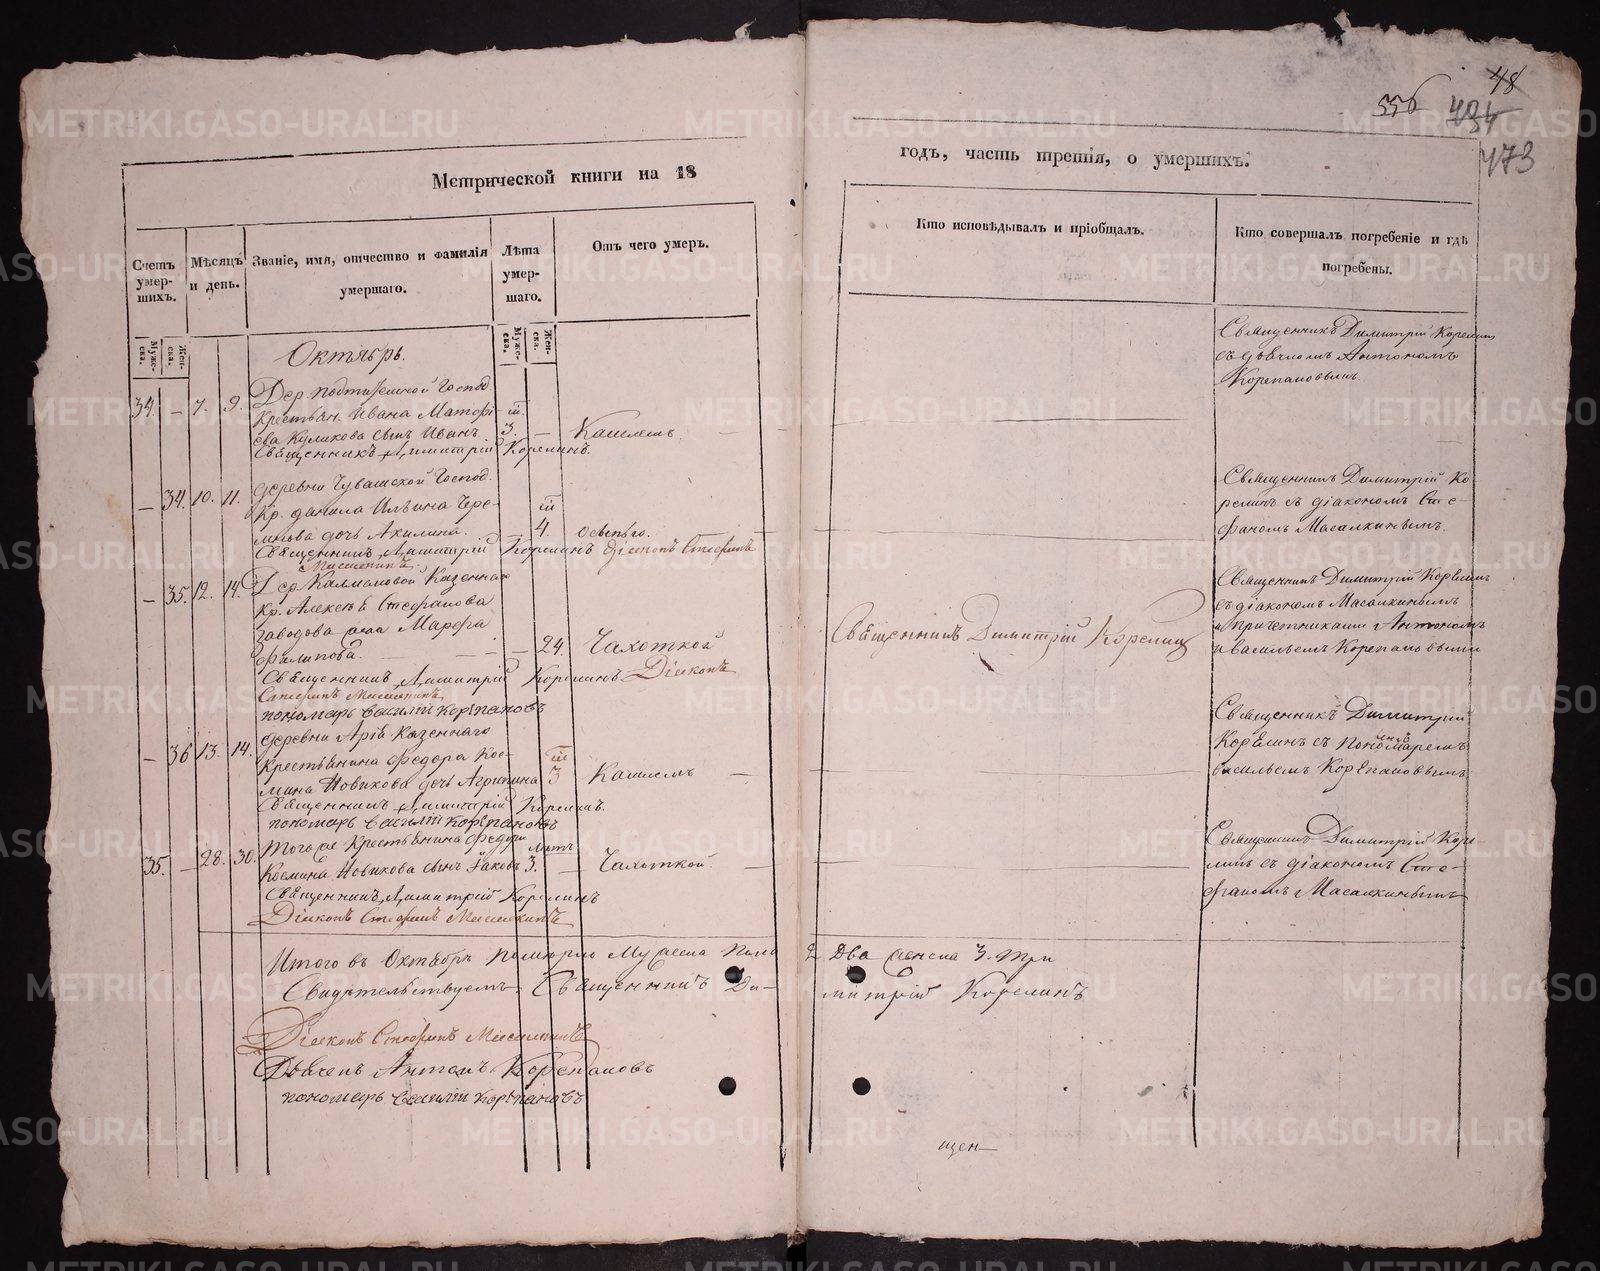 48
556 434
473
Метрической книги на 18
годъ, часть третія, о умершихъ.
Счетъ умер-шихъ.
Мѣсяцъ и день.
Званіе, имя, отчество и фамилія умершаго.
Лѣта умер-шаго.
Отъ чего умеръ.
Кто исповѣдывалъ и пріобщалъ.
Кто совершалъ погребеніе и гдѣ погребены.
Муже-ска.
Жен-ска.
Муже-ска.
Жен-ска.
Октябрь.
34. — 7. 9.
Дер. Господ.
Крестьян. Ивана Матфѣ-
ева Куликова сынъ Иванъ 3. — Кашлемъ.
Священникъ Димитрій Корелинъ.
Священникъ Димитрій Корелинъ
съ дьячкомъ Антономъ
Корепановымъ.
— 34. 10. 11.
деревни Чувашской Господ.
Кр. Данила Ильина Чере-
дочь Акилина. — 4. оспою.
Священникъ Димитрій Корелинъ Діаконъ Стефанъ
Масалкинъ
Священникъ Димитрій Ко-
релинъ съ діакономъ Сте-
фаномъ Масалкинымъ.
— 35. 12. 14.
Дер. Калмаковой Казеннаго
кр. Алексѣя Стефанова
Заводова жена Марфа
Филипова. — — 24. Чахоткой
Священникъ Димитрій Корелинъ Діаконъ
Стефанъ Масалкинъ
пономарь Василій Корѣпановъ
Священникъ Димитрій Корелинъ
Священникъ Димитрій Корелинъ
съ діакономъ Масалкинымъ
и причетниками Антономъ
и Васильемъ Корепановыми
— 36 13. 14.
деревни Арія Казеннаго
Крестьянина Федора Кос-
мина Новикова дочь Агрипина 3 Кашлемъ —
Священникъ Димитрій Корелинъ.
пономарь Василій Корѣпановъ
Священникъ Димитрій
Корелинъ съ Пономаремъ
Васильемъ Корепановымъ
35. — 28. 30.
Того же Крестьянина Федора лѣтъ
Космина Новикова сынъ Іаковъ 3. — Чахоткой —
Священникъ Димитрій Корелинъ
Діаконъ Стефанъ Масалкинъ
Священникъ Димитрій Коре-
линъ съ діакономъ Сте-
фаномъ Масалкинымъ
Итого въ Октябрѣ померло Мужеска Пола 2 Два женска 3. три
Свидѣтельствуемъ Священникъ Ди-митрій Корелинъ
Діаконъ Стефанъ Масалкинъ
Дьячекъ Антонъ Корѣпановъ
пономарь Василій Корѣпановъ
щен
METRIKI.GASO-URAL.RU